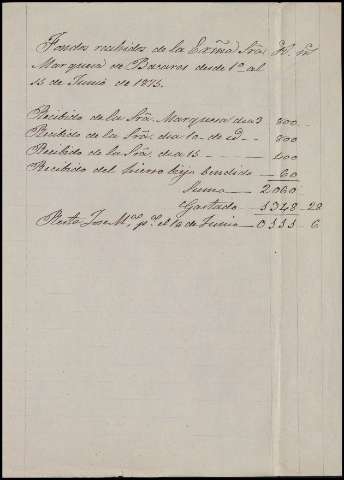 Fondos recibidos de la Exmã Srã Rs. Ms
Marquesa de Bacares desde 1º al
15 de Junio de 1875.
Recibido de la Srã. Marquesa dia 3 800
Recibido de la Srã. dia 10 de id. 800
Recibido de la Srã. dia 15 400
Recibido del hierro biejo bendido 60
Suma 2060
Gastado 1348 28
Resto Jose M. pº. el 14 de Junio 0111 6